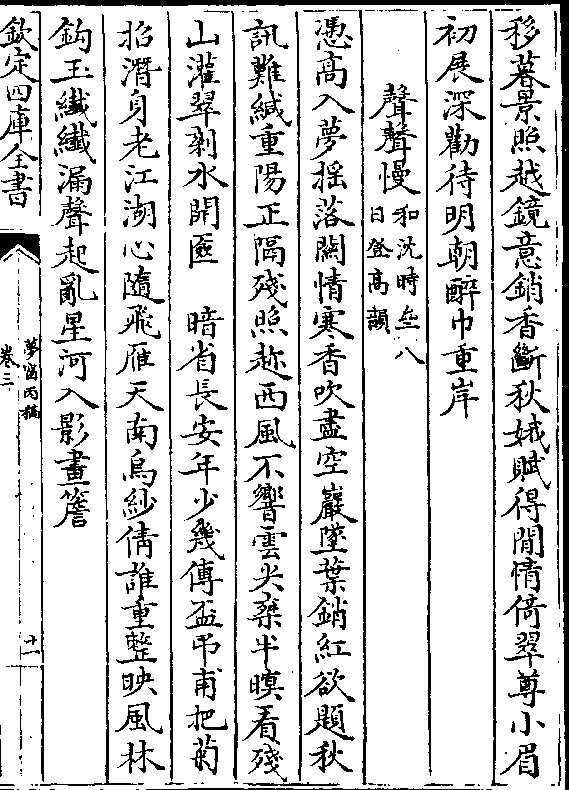 移暮景照越鏡意銷香斷秋娥賦得閒情倚翠尊小眉
初展深勸待明朝醉巾重岸
聲聲慢 和沈時齋八
日登高韻
憑高入夢搖落關情寒香吹盡空巖墜葉銷紅欲題秋
訊難緘重陽正隔殘照趂西風不響雲尖乘半暝看殘
山灌翠剩水開匳 暗省長安年少幾傳盃弔甫把菊
招潛身老江湖心隨飛雁天南烏紗倩誰重整映風林
鈎玉纖纖漏聲起亂星河入影畫簷
欽定四庫全書
夢窗丙稿
卷三
十一